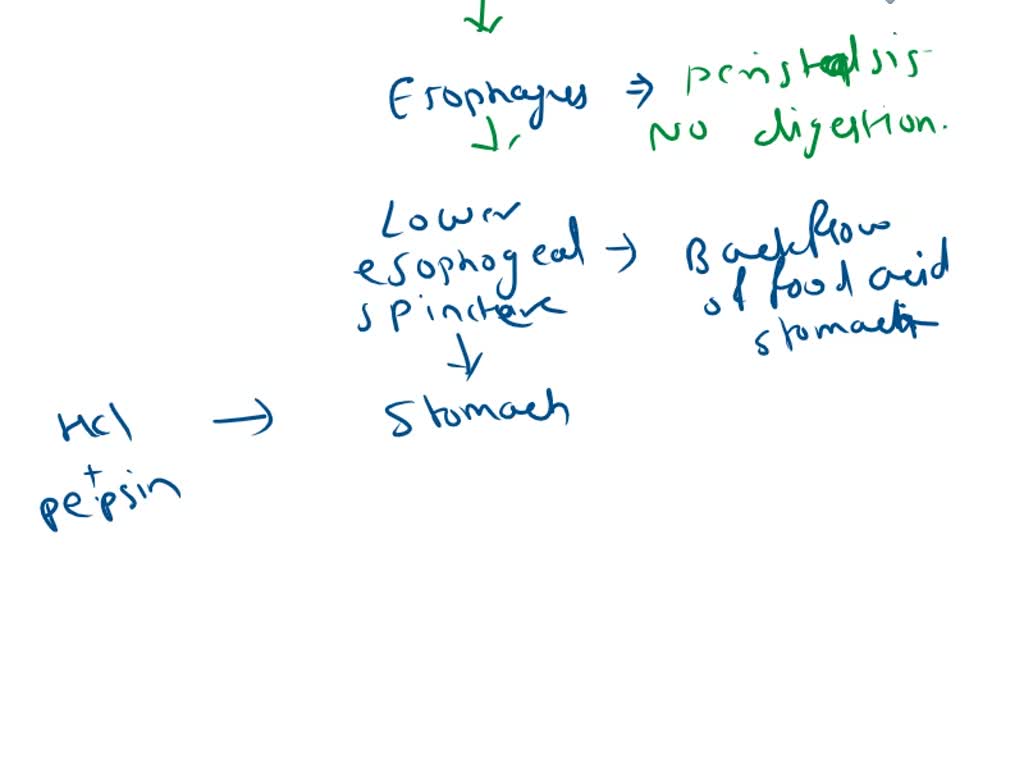 Esophagues ⇒ peristalsis
No digestion.
Lower
esophogeal → Backflow
spincter of food acid
stomach
↓
HCl → Stomach
+
pepsin